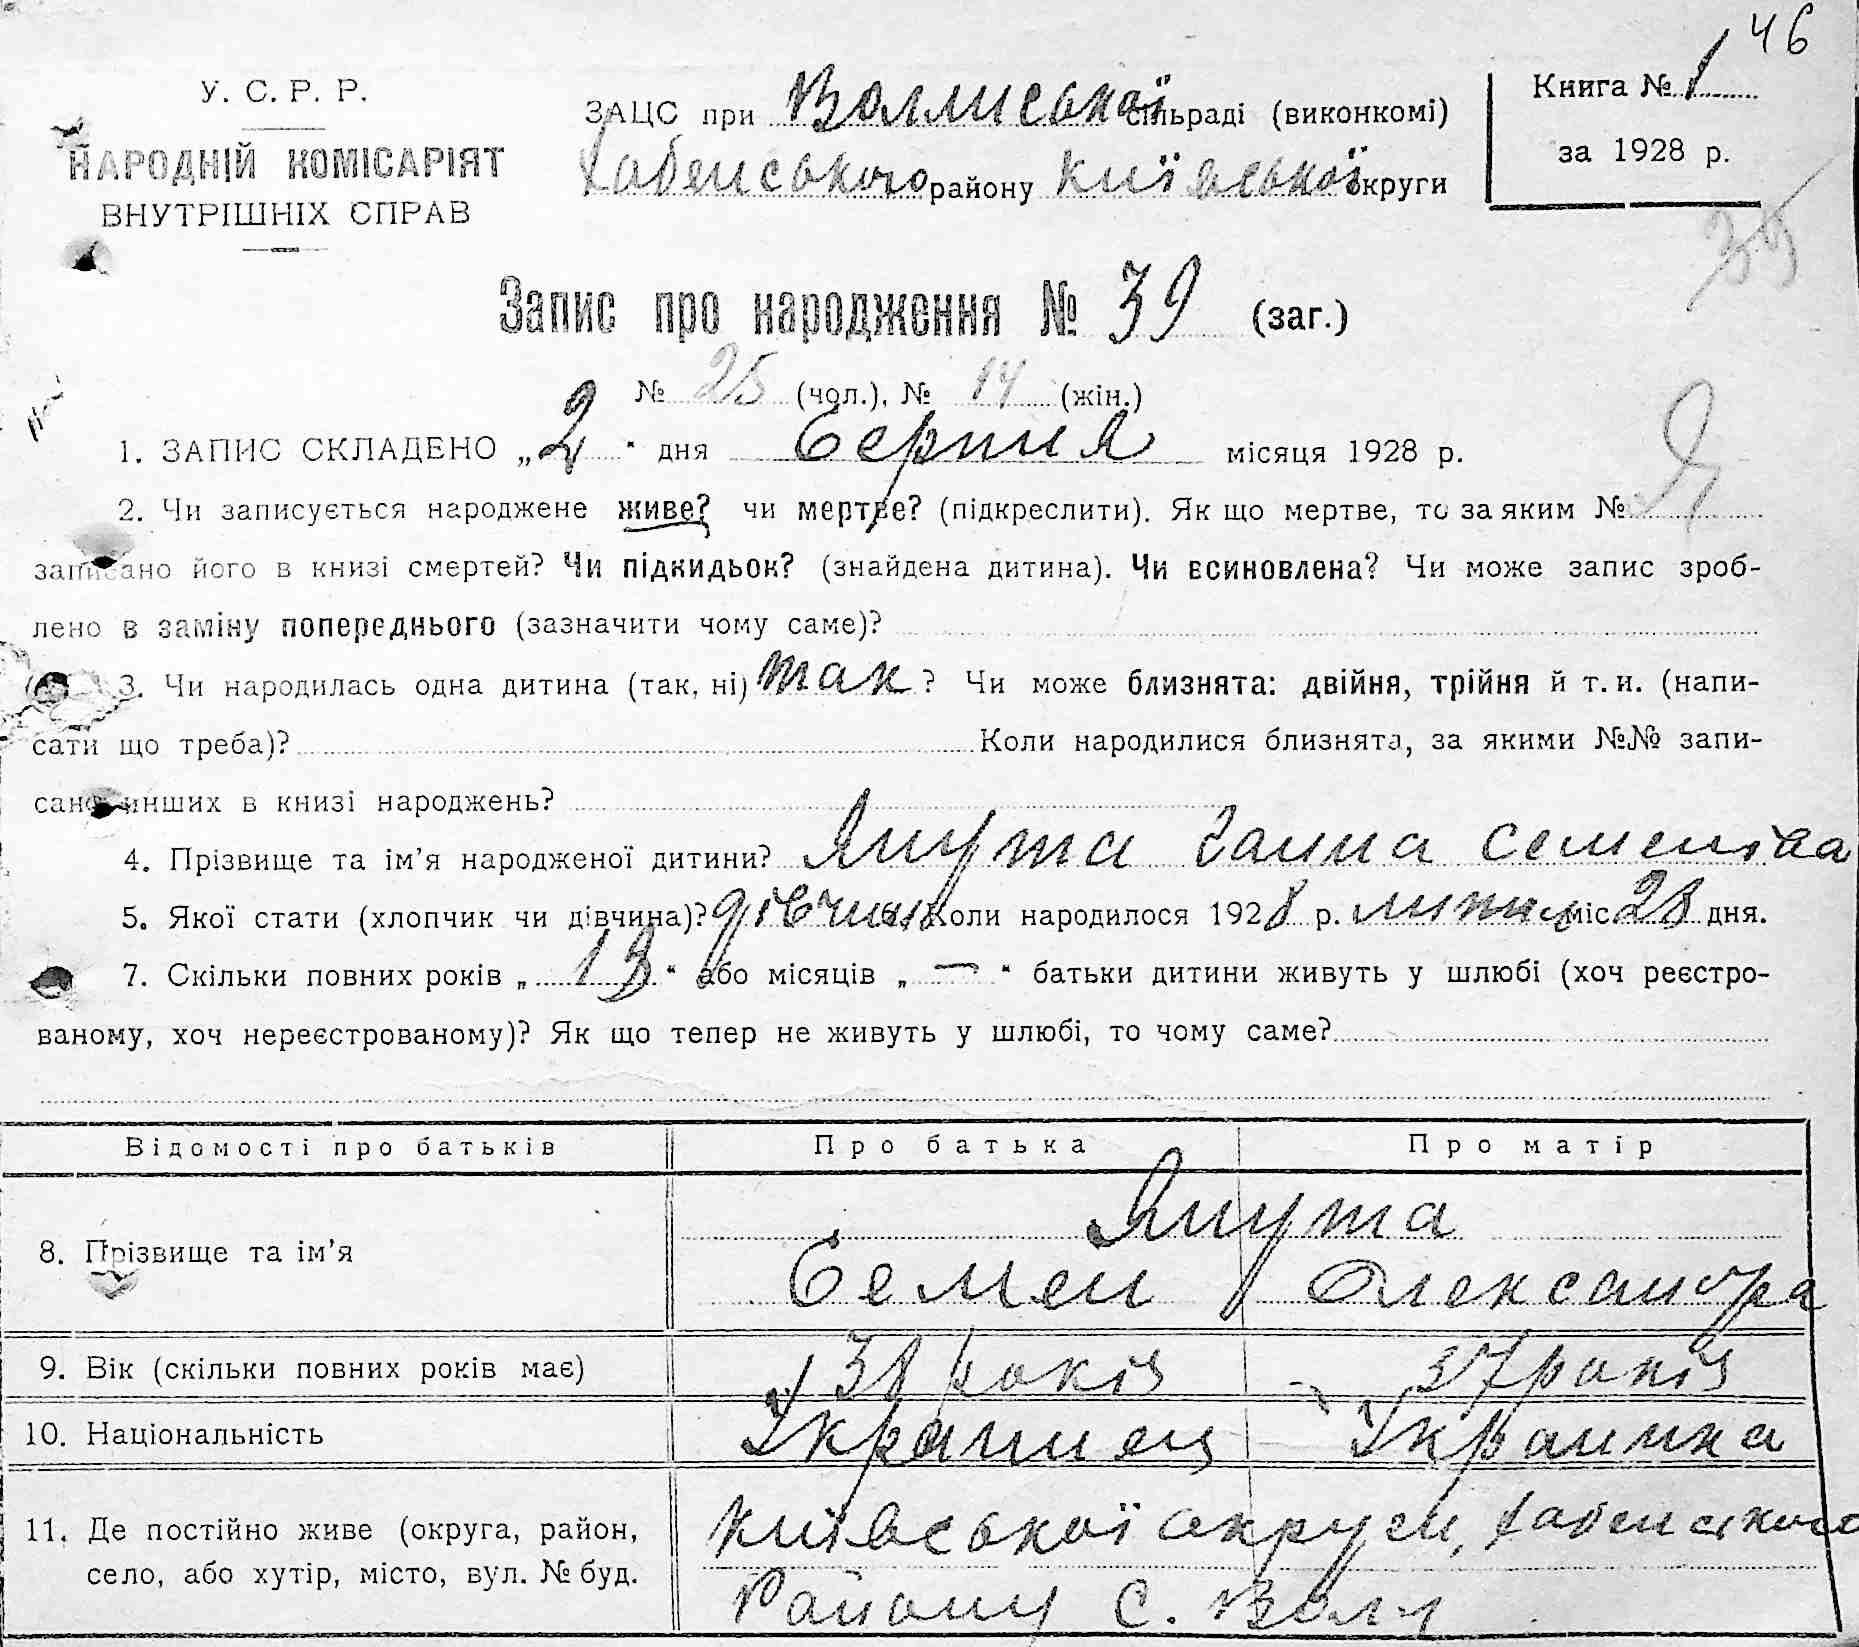 46
У. С. Р. Р.
НАРОДНІЙ КОМІСАРІЯТ
ВНУТРІШНІХ СПРАВ
ЗАЦС при Воллиської сільраді (виконкомі)
Хабенського району Київської округи
Книга № 1
за 1928 р.
35
Запис про народження № 39 (заг.)
№ 25 (чол.), № 14 (жін.)
1. ЗАПИС СКЛАДЕНО „2“ дня Серпня місяця 1928 р.
2. Чи записується народжене живе? чи мертве? (підкреслити). Як що мертве, то за яким №
записано його в книзі смертей? Чи підкидьок? (знайдена дитина). Чи всиновлена? Чи може запис зроб-
лено в заміну попереднього (зазначити чому саме)?
3. Чи народилась одна дитина (так, ні) так? Чи може близнята: двійня, трійня й т. и. (напи-
сати що треба)? Коли народилися близнята, за якими №№ запи-
сано инших в книзі народжень?
4. Прізвище та ім’я народженої дитини? Янута Ганна Семенівна
5. Якої стати (хлопчик чи дівчина)? дівчина Коли народилося 1928 р. липня міс 28 дня.
7. Скільки повних років „13“ або місяців „—“ батьки дитини живуть у шлюбі (хоч реєстро-
ваному, хоч нереєстрованому)? Як що тепер не живуть у шлюбі, то чому саме?
Відомості про батьків Про батька Про матір
Янута
8. Прізвище та ім’я Семен Олександра
9. Вік (скільки повних років має) 38 років 37 років
10. Національність Украинец Украинка
11. Де постійно живе (округа, район, Київської округи, Хабенського
село, або хутір, місто, вул. № буд. Району с.